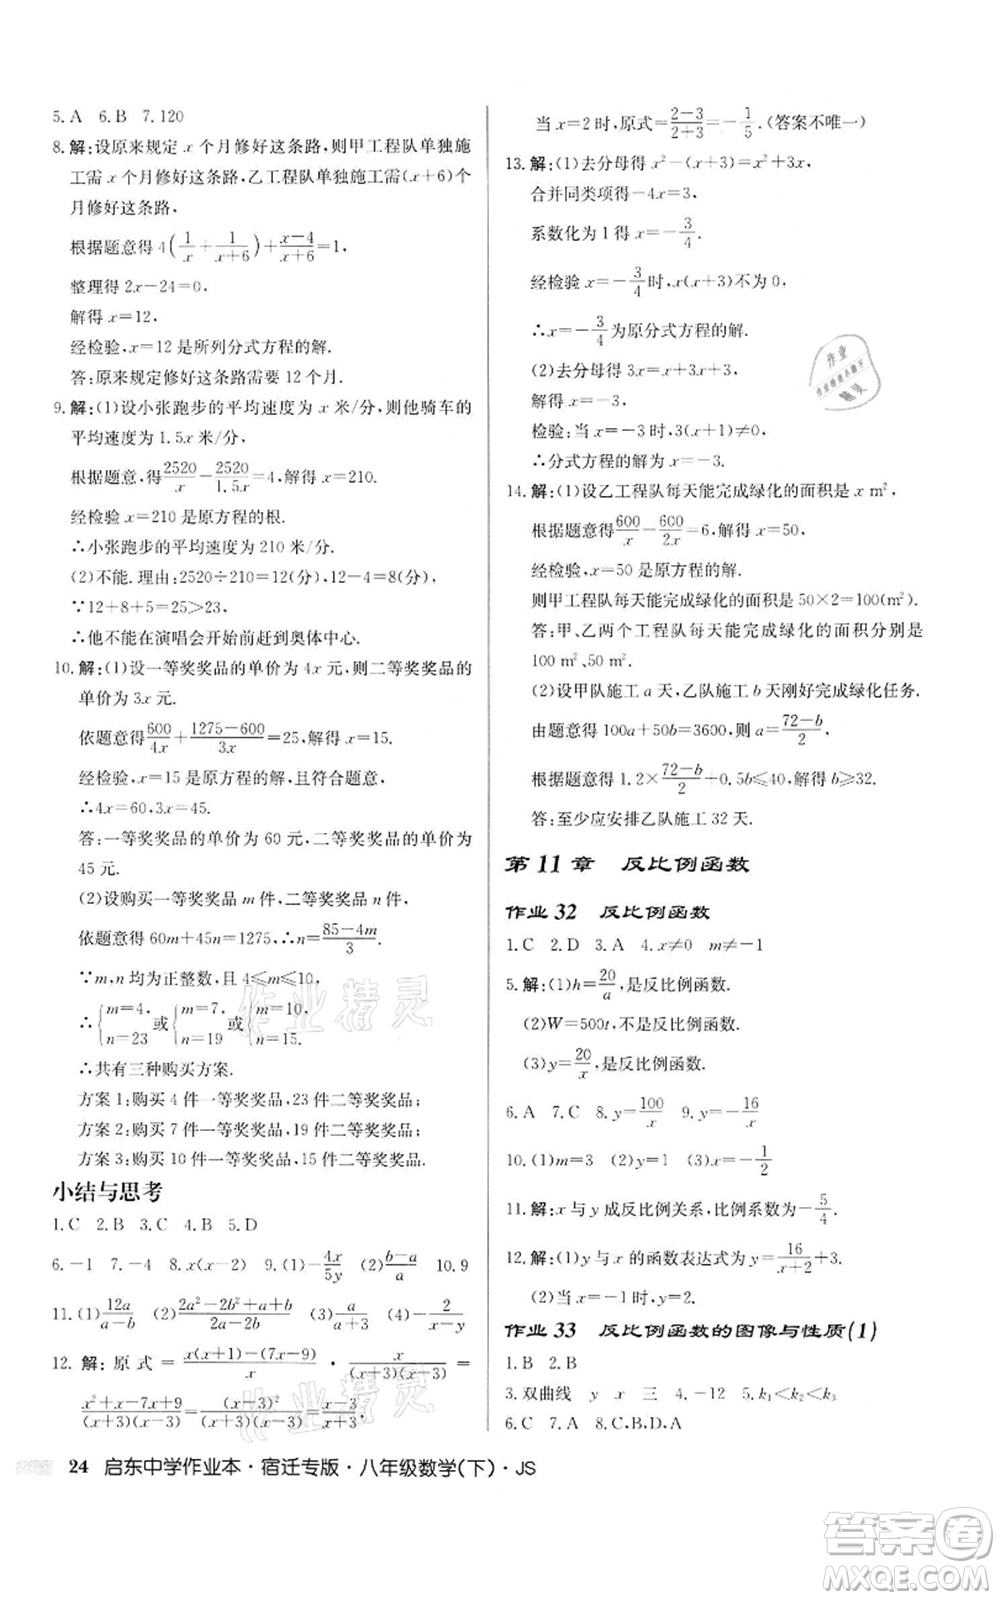 5. A  6. B  7. 120
8. 解:设原来规定 x 个月修好这条路,则甲工程队单独施
工需 x 个月修好这条路,乙工程队单独施工需(x+6)个
月修好这条路,
根据题意得 4(1/x + 1/(x+6)) + (x-4)/(x+6) = 1,
整理得 2x-24=0,
解得 x=12,
经检验,x=12 是所列分式方程的解.
答:原来规定修好这条路需要 12 个月.
9. 解:(1)设小张跑步的平均速度为 x 米/分,则他骑车的
平均速度为 1.5x 米/分,
根据题意,得 2520/x - 2520/1.5x = 4,解得 x=210.
经检验,x=210 是原方程的根.
∴小张跑步的平均速度为 210 米/分.
(2)不能. 理由:2520÷210=12(分),
∵12+8+5=25>23,
∴他不能在演唱会开始前赶到奥体中心.
10. 解:(1)设一等奖奖品的单价为 4x 元,则二等奖奖品的
单价为 3x 元.
依题意得 600/4x + (1275-600)/3x = 25,解得 x=15.
经检验,x=15 是原方程的解,且符合题意.
∴4x=60,3x=45.
答:一等奖奖品的单价为 60 元,二等奖奖品的单价为
45 元.
(2)设购买一等奖奖品 m 件,二等奖奖品 n 件,
依题意得 60m+45n=1275,∴n=(85-4m)/3.
∵m,n 均为正整数,且 4≤m≤10,
∴{m=4, n=23 或{m=7, n=19 或{m=10, n=15.
∴共有三种购买方案.
方案 1:购买 4 件一等奖奖品,23 件二等奖奖品;
方案 2:购买 7 件一等奖奖品,19 件二等奖奖品;
方案 3:购买 10 件一等奖奖品,15 件二等奖奖品.
小结与思考
1. C  2. B  3. C  4. B  5. D
6. -1  7. -4  8. x(x-2)  9. (1)-4x/5y  (2)(b-a)/a  10. 9
11. (1)12a/(a-b)  (2)(2a²-2b²+a+b)/(2a-2b)  (3)a/(a+b)  (4)-2/(x-y)
12. 解:原式=(x(x+1)-(7x-9))/x · x/((x+3)(x-3)) =
(x²+x-7x+9)/((x+3)(x-3)) = (x-3)²/((x+3)(x-3)) = (x-3)/(x+3).
24  启东中学作业本·宿迁专版·八年级数学(下)·JS
当 x=2 时,原式=(2-3)/(2+3)=-1/5.(答案不唯一)
13. 解:(1)去分母得 x²-(x+3)=x²+3x,
合并同类项得-4x=3,
系数化为 1 得 x=-3/4.
经检验,x=-3/4 时,x(x+3)不为 0,
∴x=-3/4 为原分式方程的解.
(2)去分母得 3x=2x+3x+3,
解得 x=-3/2.
检验:当 x=-3/2 时,3(x+1)≠0,
∴分式方程的解为 x=-3/2.
14. 解:(1)设乙工程队每天能完成绿化的面积是 x m²,
根据题意得 600/x - 600/2x = 6,解得 x=50,
经检验,x=50 是原方程的解.
则甲工程队每天能完成绿化的面积是 50×2=100(m²).
答:甲、乙两个工程队每天能完成绿化的面积分别是
100 m²、50 m².
(2)设甲队施工 a 天,乙队施工 b 天刚好完成绿化任务.
由题意得 100a+50b=3600,则 a=(72-b)/2,
根据题意得 1.2×(72-b)/2+0.5b≤40,解得 b≥32.
答:至少应安排乙队施工 32 天.
第 11 章  反比例函数
作业 32  反比例函数
1. C  2. D  3. A  4. x≠0  m≠-1
5. 解:(1)h=20/a,是反比例函数.
(2)W=500t,不是反比例函数.
(3)y=20/x,是反比例函数.
6. A  7. C  8. y=100/x  9. y=-16/x
10. (1)m=3  (2)m=-1  (3)x=-1/2
11. 解:x 与 y 成反比例关系,比例系数为-5/4.
12. 解:(1)y 与 x 的函数表达式为 y=16/(x+2)+3.
(2)当 x=-1 时,y=2.
作业 33  反比例函数的图像与性质(1)
1. B  2. B
3. 双曲线  y  x  三  4. -12  5. k₁<k₂<k₃
6. C  7. A  8. C、B、D、A
作业精灵
作业精灵
作业
答案卷
MXQE.COM